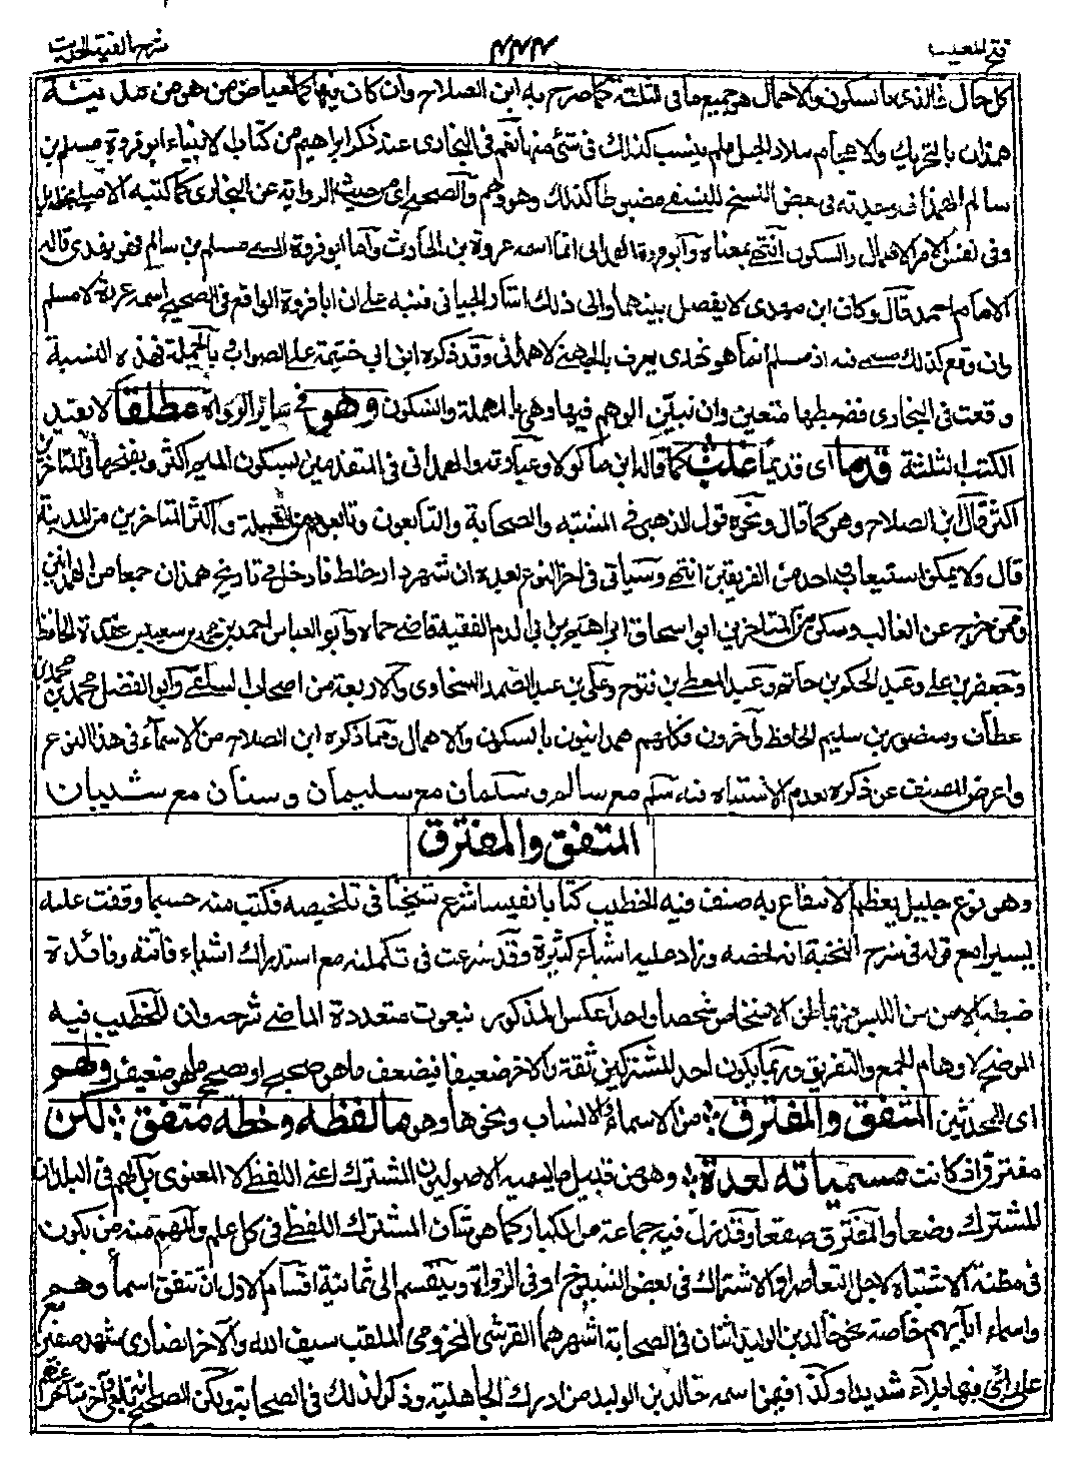 فتح المغيث ٤٤٤ شرح الفية الحديث
كل حال فالذي بالسكون والاهمال هو جميع ما في الثلثة كما صرح به ابن الصلاح وان كان فيها كما لعياض من هو من مدينة
همذان بالتحريك والاعجام ببلاد الجبل فلم ينسب كذلك في شئ منها نعم في البخاري عند ذكر ابراهيم من كتاب الانبياء ابو فروة مسلم بن
سالم الهمذاني وجدته في بعض النسخ للنسفي مضبوطا كذلك وهو وهم والصحيح اي من حيث الرواية عن البخاري كما كتبه الاصيلي بخطه
وفي نفس الامر الاهمال والسكون انتهى بمعناه وابو فروة الهمداني انما اسمه عروة بن الحارث واما ابو فروة المسمى مسلم بن سالم فهو نهدي قاله
الامام احمد قال وكان ابن مهدي لا يفصل بينهما والى ذلك اشار الجياني فنبه على ان ابا فروة الواقع في الصحيح اسمه عروة لا مسلم
وان وقع كذلك فيه اذ مسلم انما هو نهدي يعرف بالجهني لا همداني وقد ذكره ابن ابي خيثمة على الصواب بالجملة فهذه النسبة
وقعت في البخاري فضبطها متعين وان تبين الوهم فيها وهي بالمهملة والسكون وهو في سائر الرواة مطلقا لا بقيد
الكتب الثلثة قدما اي قديما غلب كما قاله ابن ماكولا وعبارته والهمداني في المتقدمين بسكون الميم اكثر وبفتحها في المتاخرين
اكثر قال ابن الصلاح وهو كما قال ونحوه قول الذهبي في المشتبه والصحابة والتابعون وتابعوهم من القبيلة واكثر المتاخرين من المدينة
قال ولا يمكن استيعاب احد من الفريقين انتهى وسياتي في اخر النوع بعده ان شهردار خلط فادخل في تاريخ همذان جمعا من الهمدانيين
وممن خرج عن الغالب وسكن من المتاخرين ابو اسحاق ابراهيم بن ابي الدم الفقيه قاضي حماه وابو العباس احمد بن محمد بن سعيد بن عقدة الحافظ
وجعفر بن علي وعبد الحكم بن حاتم وعبد المعطي بن فتوح وعلي بن عبد الصمد السخاوي والاربعة من اصحاب السلفي وابو الفضل محمد بن محمد بن
عطاف ومنصور بن سليم الحافظ وآخرون فكلهم همدانيون بالسكون والاهمال ومما ذكره ابن الصلاح من الاسماء في هذا النوع
واعرض المصنف عن ذكره لعدم الاشتباه فيه سلم مع سالم وسلمان مع سليمان وسنان مع شيبان
المتفق والمفترق
وهو نوع جليل يعظم الانتفاع به صنف فيه الخطيب كتابا نفيسا شرع شيخنا في تلخيصه فكتب منه حسبما وقفت عليه
يسيرا مع قوله في شرح النخبة انه لخصه وزاد عليه اشياء كثيرة وقد شرعت في تكملته مع استدراك اشياء فاتته وفائدة
ضبطه الامن من اللبس فربما ظن الاشخاص شخصا واحدا عكس المذكور بنعوت متعددة الماضي شرحه وان للخطيب فيه
الموضح لاوهام الجمع والتفريق وربما يكون احد المشتركين ثقة والاخر ضعيفا فيضعف ما هو صحيح او يصحح ما هو ضعيف ولهم
اي المحدثين المتفق والمفترق من الاسماء والانساب ونحوها وهو ما لفظه وخطه متفق لكن
مفترق اذ كانت مسمياته لعدة وهو من قبيل ما يسميه الاصوليون المشترك اعني اللفظي لا المعنوي بل لهم في البلدان
المشترك وضعا والمفترق صقعا وقد زل فيه جماعة من الكبار كما هو شأن المشترك اللفظي في كل علم والمهم منه من يكون
في مظنة الاشتباه لاجل التعاصر او الاشتراك في بعض الشيوخ او في الرواة وينقسم الى ثمانية اقسام الاول ان تتفق اسماؤهم
واسماء آبائهم خاصة نحو خالد بن الوليد اثنان في الصحابة اشهرهما القرشي المخزومي الملقب سيف الله والآخر انصاري شهد صفين مع
علي وابلى فيها بلاء شديدا وكذا فيمن اسمه خالد بن الوليد من ادرك الجاهلية وذكر لذلك في الصحابة ولكن الصحيح انه تابعي وآخر متأخر عنهم